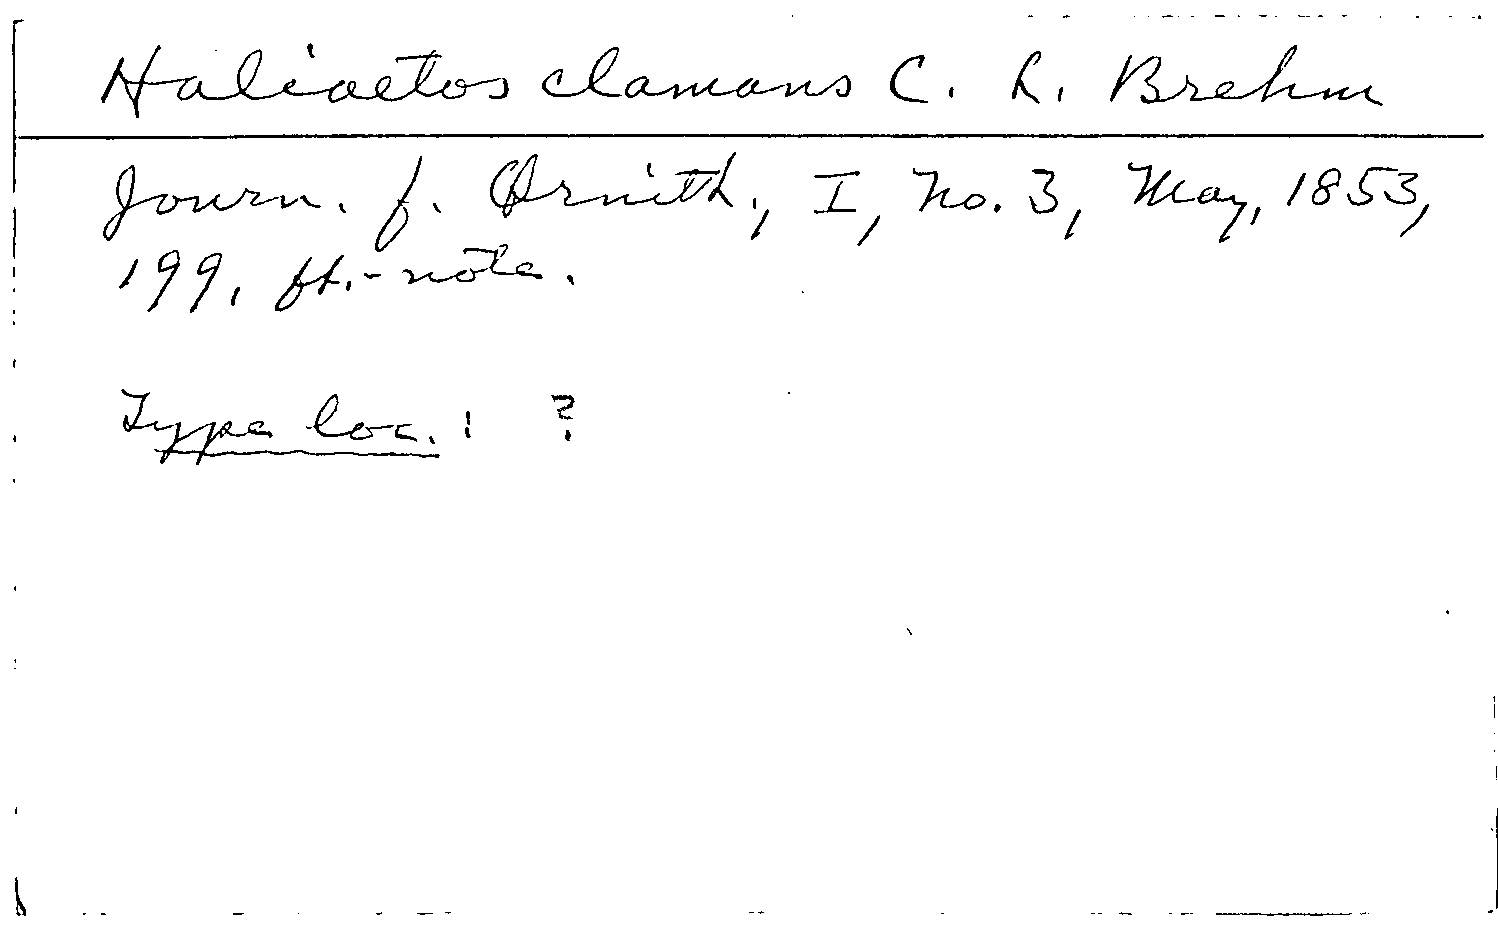 Haliaetos clamans C. L. Brehm
Journ. f. Ornith., I, No. 3, May, 1853,
199, ft.-note.
Type loc.: ?